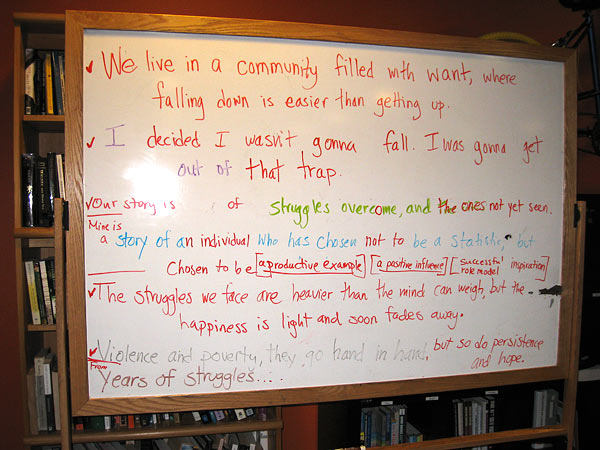 We live in a community filled with want, where
falling down is easier than getting up.
I decided I wasn't gonna fall. I was gonna get
out of that trap.
Our story is of struggles overcome, and the ones not yet seen.
Mine is
a story of an individual who has chosen not to be a statistic, but
Chosen to be [a productive example] [a positive influence] [successful role model inspiration]
The struggles we face are heavier than the mind can weigh, but the
happiness is light and soon fades away.
Violence and poverty, they go hand in hand, but so do persistence and hope.
From
Years of struggles....